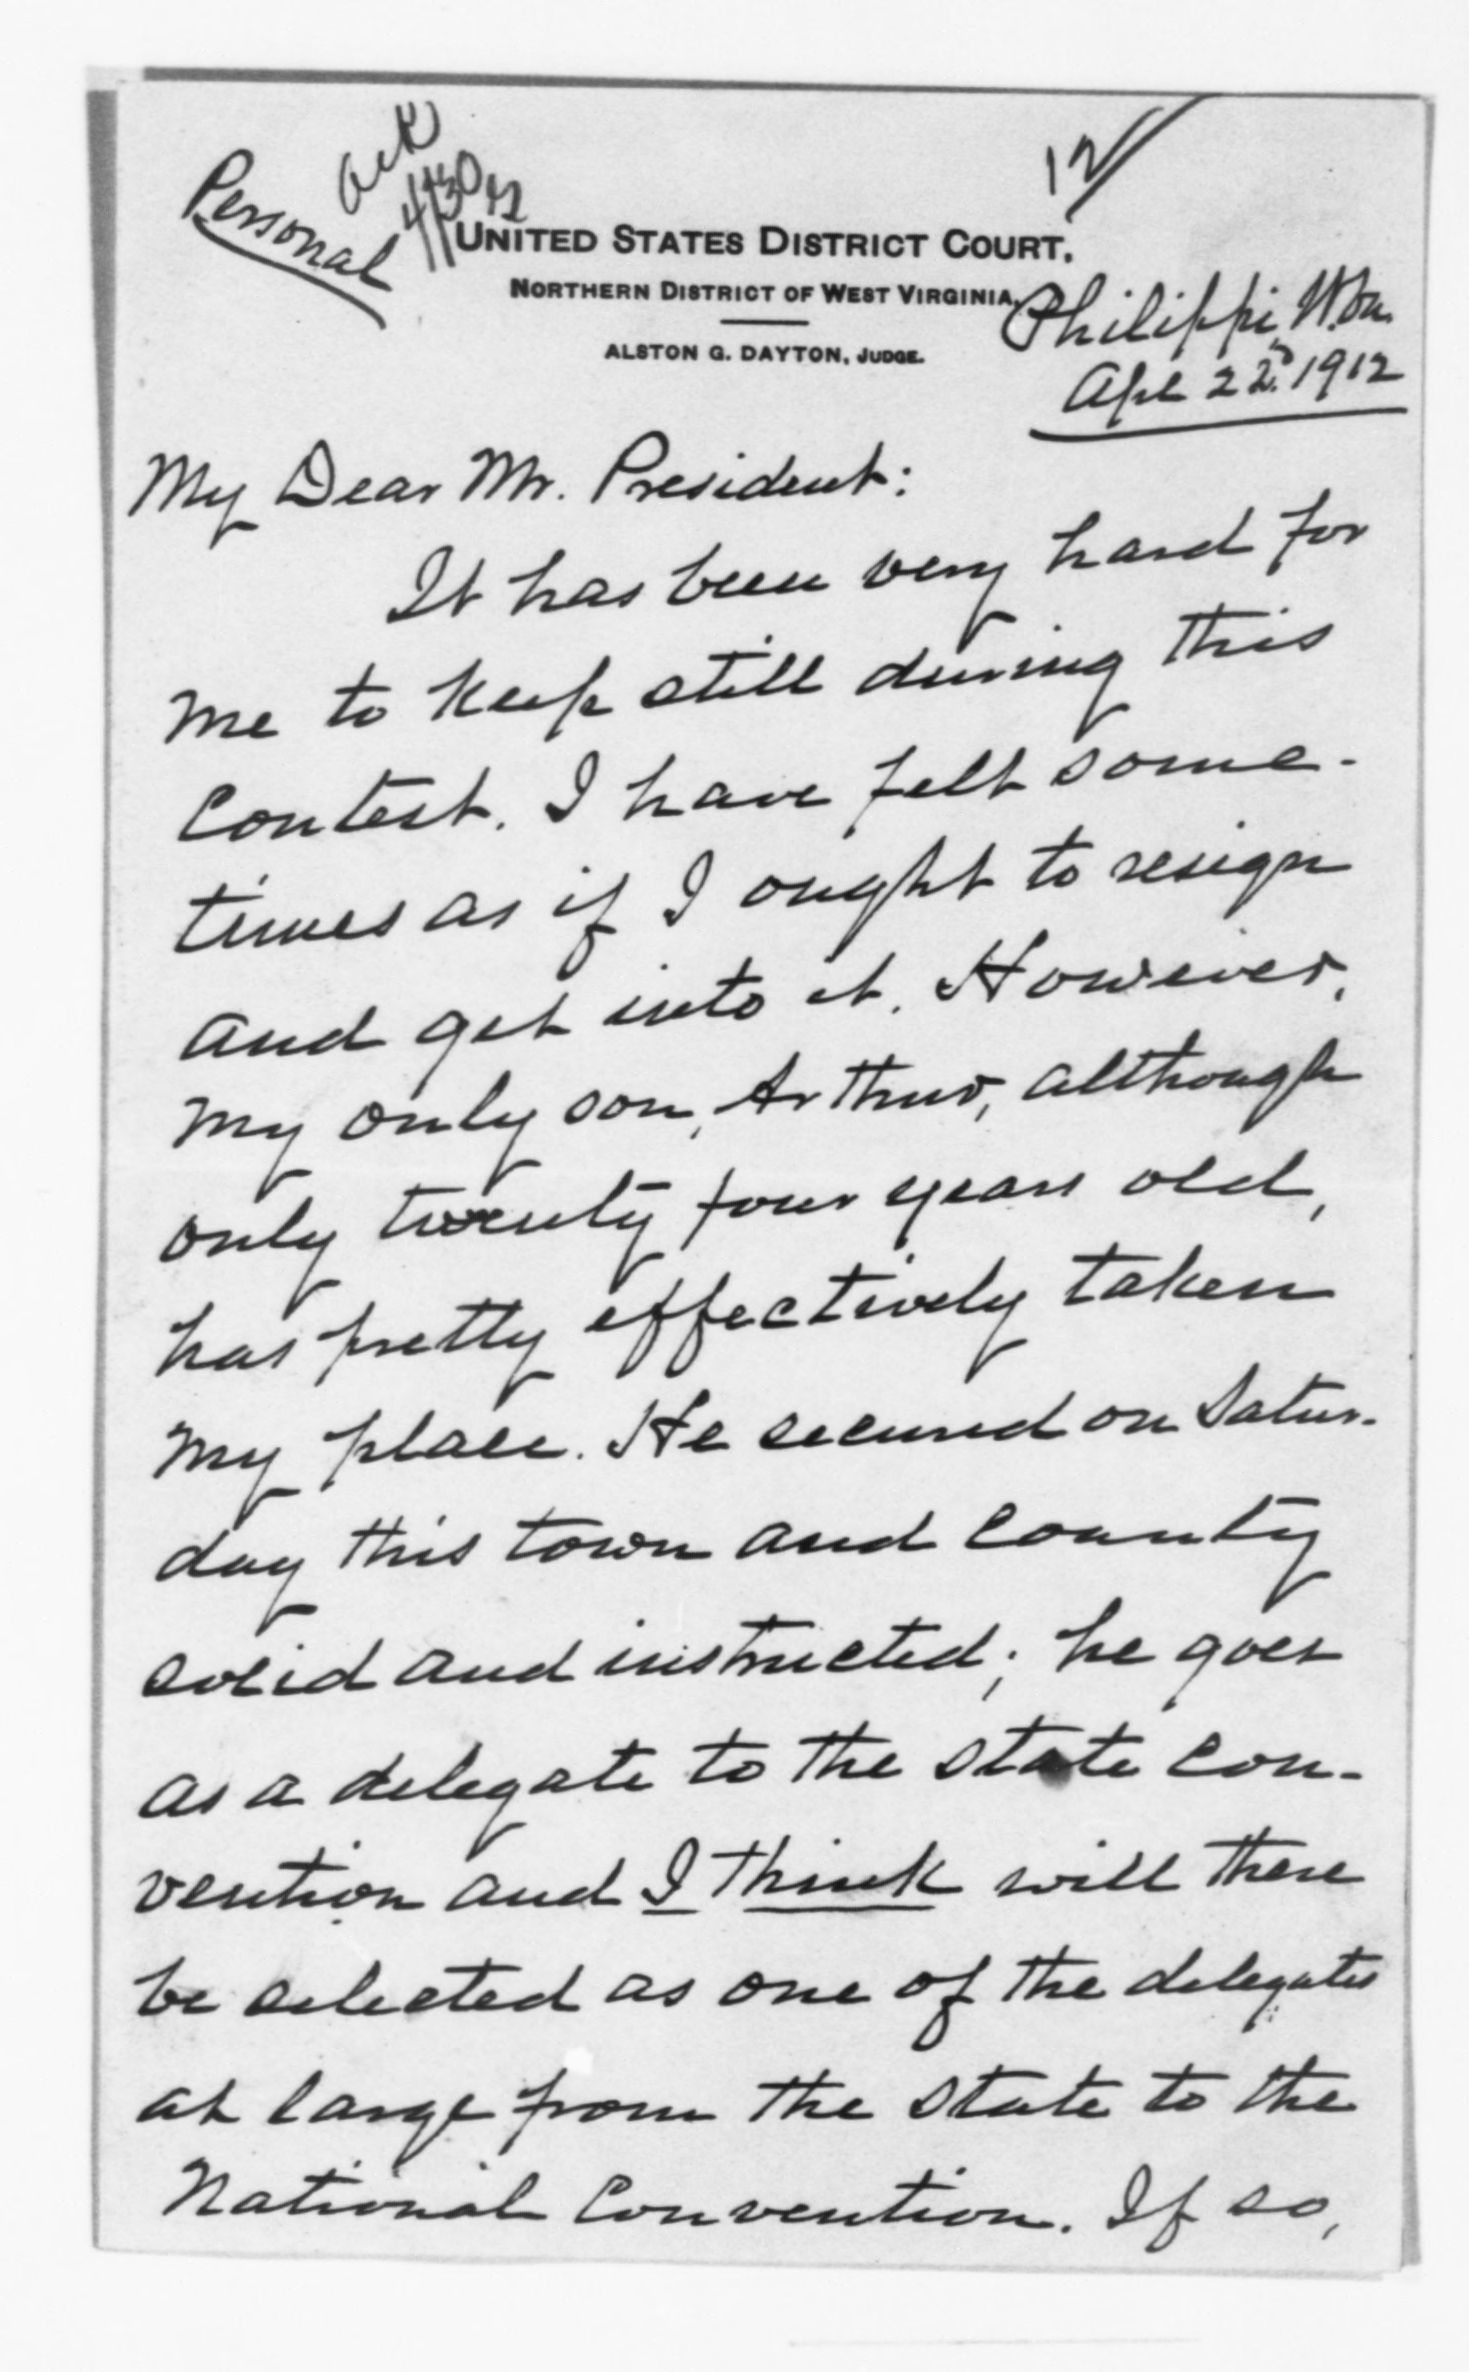 Personal
Ack
4/30/12
12
UNITED STATES DISTRICT COURT,
NORTHERN DISTRICT OF WEST VIRGINIA.
ALSTON G. DAYTON, JUDGE.
Philippi, W.Va.
Apl 22d. 1912
My Dear Mr. President:
It has been very hard for
me to keep still during this
contest. I have felt some-
times as if I ought to resign
and get into it. However,
my only son, Arthur, although
only twenty four years old,
has pretty effectively taken
my place. He secured on Satur-
day this town and county
solid and instructed; he goes
as a delegate to the state con-
vention and I think will there
be selected as one of the delegates
at large from the state to the
National Convention. If so,